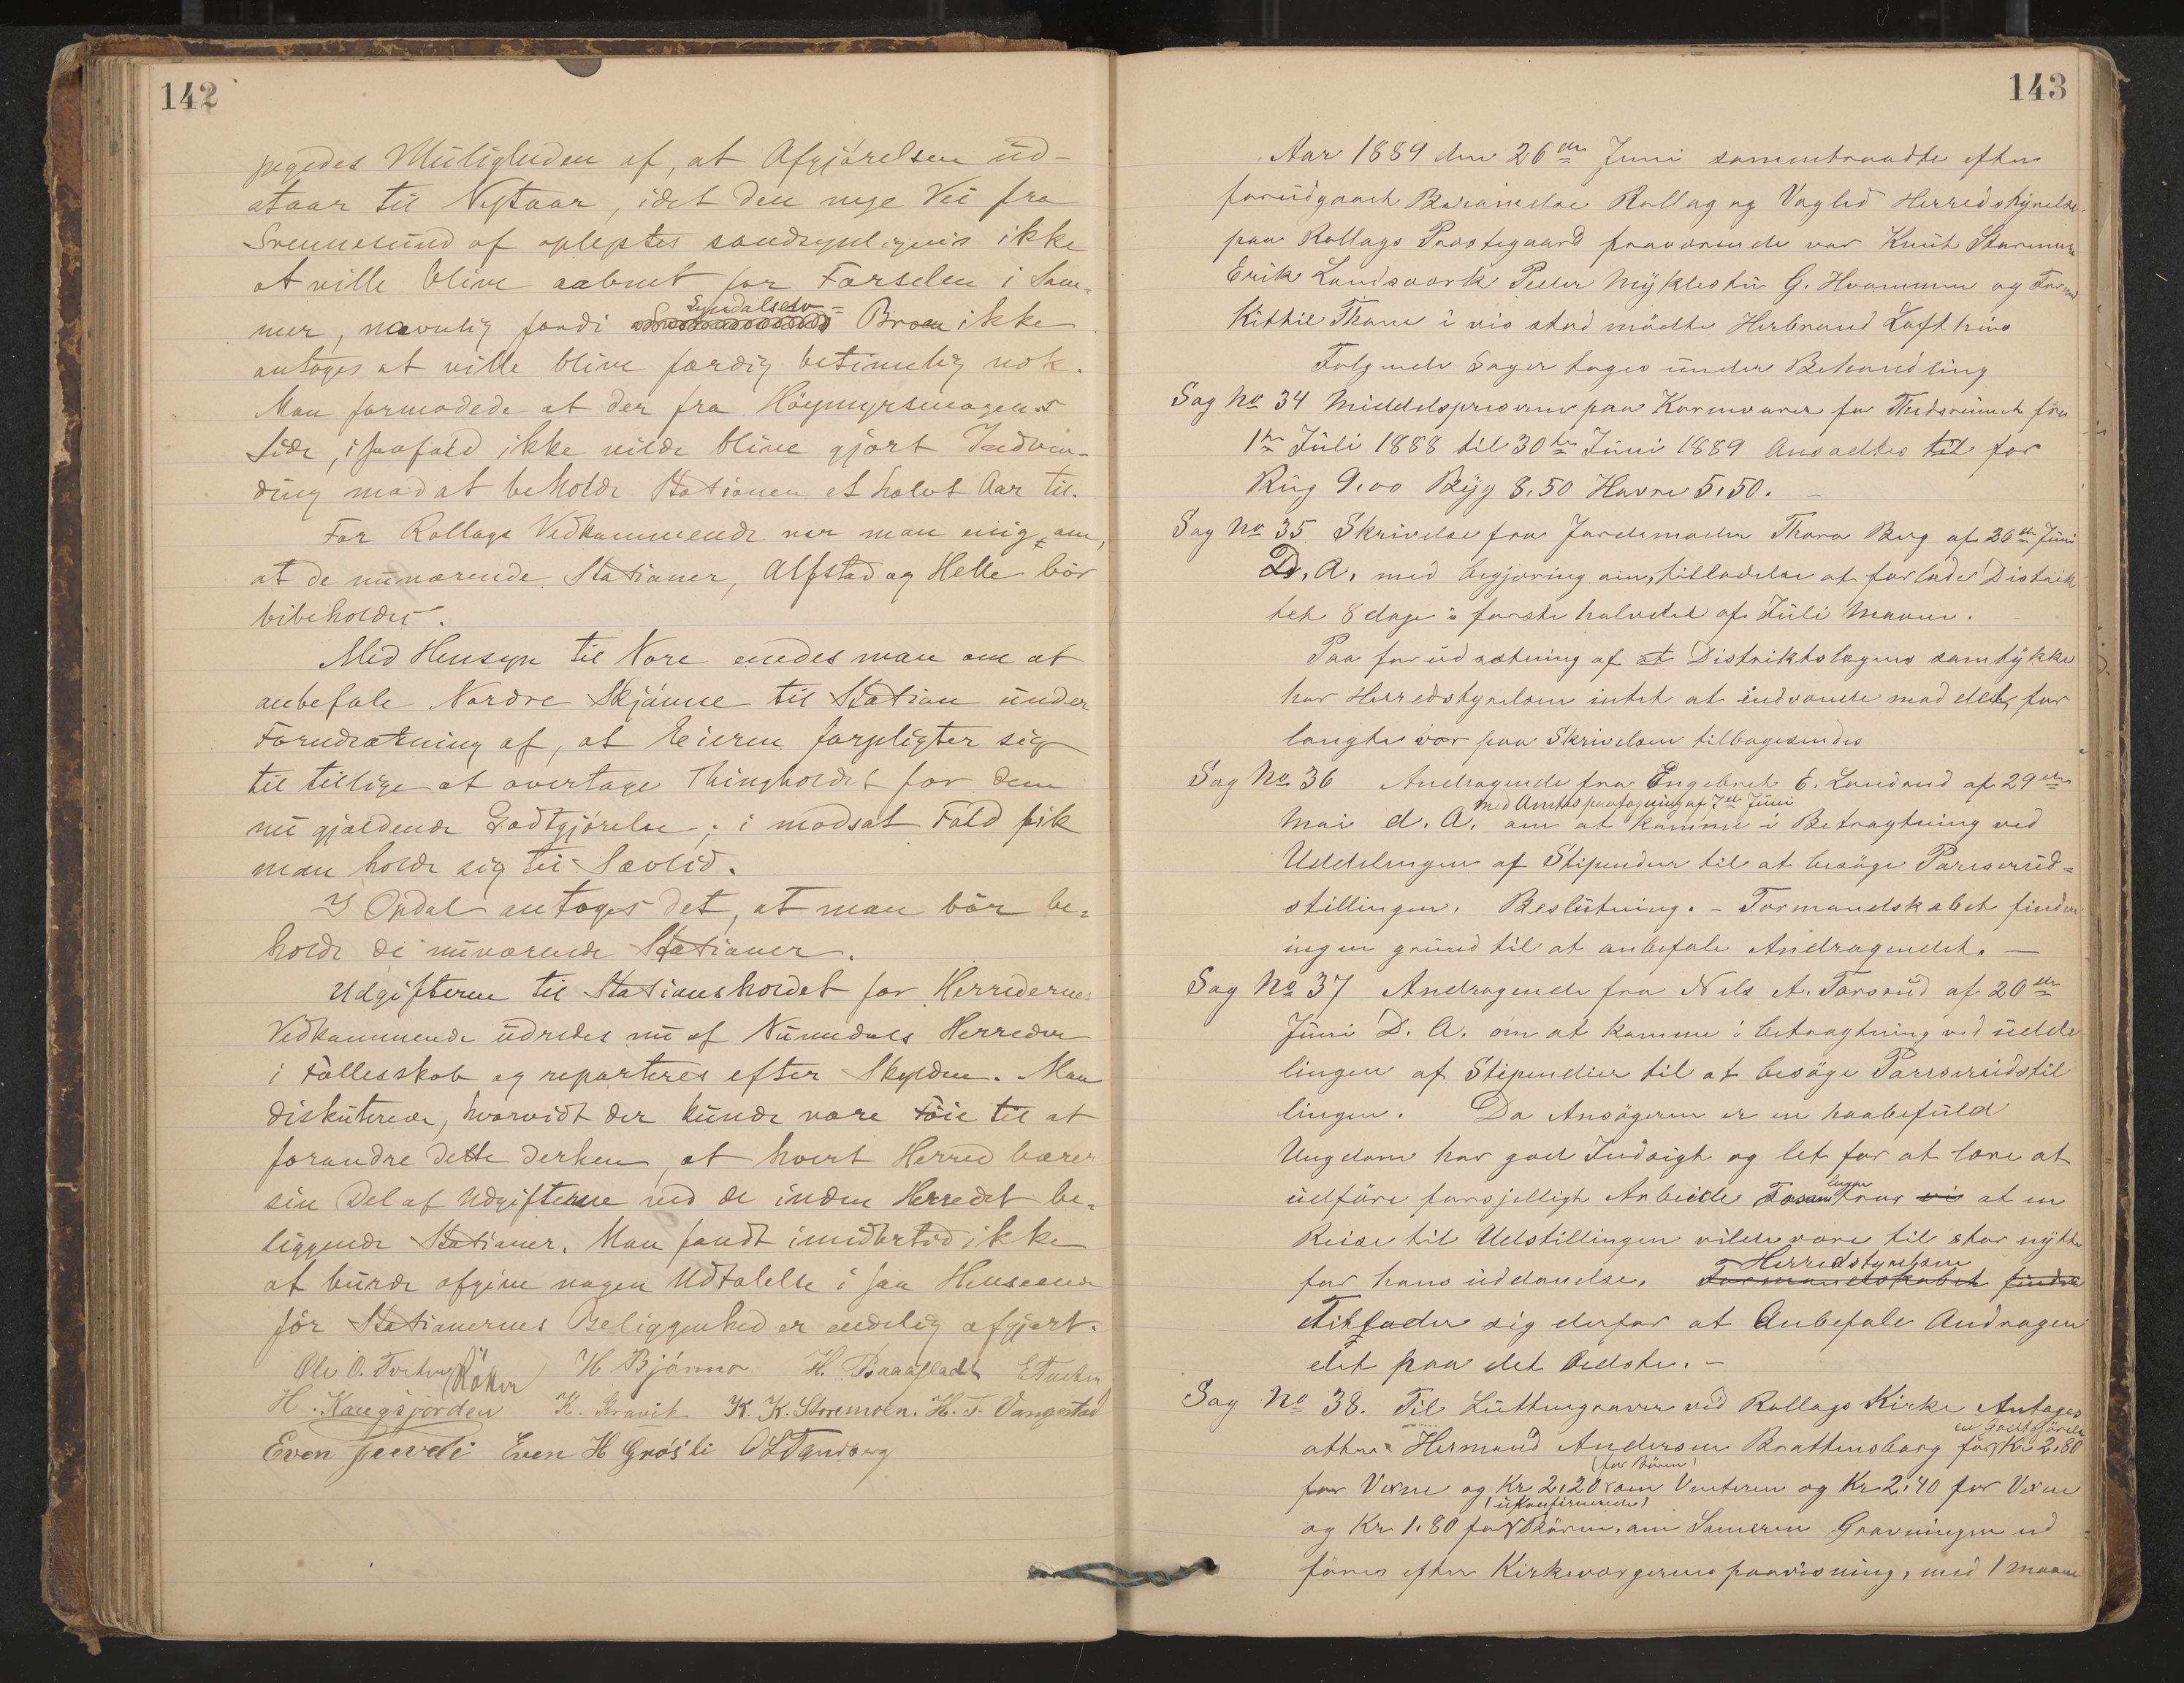 142
pegedes Muligheden af, at Afgjörelsen ud-
staar til Nytaar, idet den nye Vei fra
Svennesund af oplystes sandsynligvis ikke
at ville blive aabnet for Færselen i Som-
mer, navnlig fordi Broen ikke
antoges at ville blive færdig betimelig nok.
Man formodede at der fra Höymyrsmagens
Side, isaafald ikke vilde blive gjort Indven-
ding mod at beholde Stationen et halvt Aar til.
For Rollags Vedkommende var man enig om,
at de nuværende Stationer, Alfstad og Helle bör
bibeholdes.
Med Hensyn til Nore enedes man om at
anbefale Nordre Skjönne til Station under
Forudsætning af, at Eieren forpligter sig
til tillige at overtage Thingholdet for den
nu gjældende Godtgjörelse; i modsat Fald fik
man holde sig til Sævlid.
I Opdal antoges det, at man bör be-
holde de nuværende Stationer.
Udgifterne til Stationsholdet for Herredernes
Vedkommende udredes nu af Numedals Herreder
i Fællesskab og reparteres efter Skylden. Man
diskuterede, hvorvidt der kunde være Föie til at
forandre dette derhen, at hvert Herred bærer
sin Del af Udgifterne ved de inden Herredet be-
liggende Stationer. Man fandt imidlertid ikke
at burde afgive nogen Udtalelse i saa Henseende
för Stationernes Beliggenhed er endelig afgjort.
Ole O. Traaen Röller H Bjönno H. Braafladt E Traaen
H. Kongsjorden K. Kravik K. K. Storemoen. H. T. Vangestad
Even Juveli Even H Grösli O L Tandberg
143
Aar 1889 den 26de Juni sammentraadte efter
forudgaaet Berammelse Rollag og Veglid Herredstyrelse
paa Rollags Præstegaard fraværende var Knut Staremoen
Erik Landsverk Peder Myklestu G. Hvammen og
Kittil Thone i vis sted mödte Herbrand Lofthus
Fölgende Sager toges under Behandling
Sag No 34 Middelspriserne paa Kornvarer for Tidsrumet fra
1te Juli 1888 til 30te Juni 1889 Ansættes til for
Rug 9.00 Byg 8,50 Havre 5,50. —
Sag No 35 Skrivelse fra Jordemoder Thora Berg af 26de Juni
D. A. med begjæring om tilladelse at forlade Distrik
tet 8 dage i förste halvdel af Juli Maaned.
Paa forudsætning af at Distriktslægens samtykke
har Herredstyrelsen intet at indvende mod det for
langte vor paa Skrivelsen tilbagesendes
Sag No 36 Andragende fra Engebret E. Landsend af 29de
med Amtets paategning af 7de Juni
Mai d. A. om at komme i Betragtning ved
Uddelingen af Stipendier til at besöge Pariserud-
stillingen. Beslutning. – Formandskabet finder
ingen grund til at anbefale Andragendet. —
Sag No 37 Andragende fra Nils A. Forsrud af 20de
Juni D. A. om at komme i betragtning ved udde
lingen af Stipendier til at besöge Pariserudstil
lingen. Da Ansögeren er en haabefuld
Ungdom har god Indsigt og let for at lære at
udföre forsjelligt Arbeide vi at en
Reise til Udstillingen vilde være til stor nytte
Herredstyrelsen
for hans uddanelse. Formandskabet finder
Tillader sig derfor at Anbefale Andragen
det paa det bedste. –
Sag No 38. Til Luttergraver ved Rollags Kirke Antages
en Godtgjörelse
atter Hermand Andersen Brattensborg for Kr 2,80
(for Börn)
for Voxne og Kr 2,20 om Vinteren og Kr 2,40 for Voxne
(ukonfirmerede)
og Kr 1.80 for Börn, om Sommeren Gravningen ud
föres efter Kirkeværgernes paavisning, med 1 maan